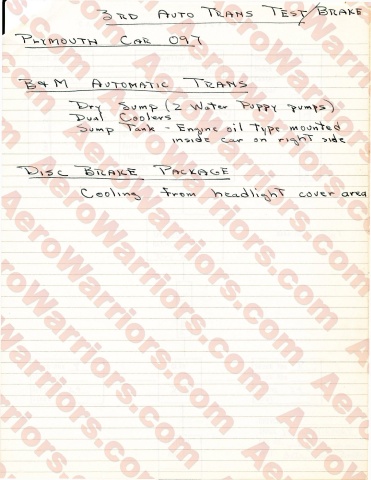 3RD AUTO TRANS TEST/BRAKE
PLYMOUTH CAR 097
B&M AUTOMATIC TRANS
Dry Sump (2 Water Puppy pumps)
Dual Coolers
Sump Tank - Engine oil Type mounted
inside car on right side
DISC BRAKE PACKAGE
Cooling from headlight cover area
AeroWarriors.com